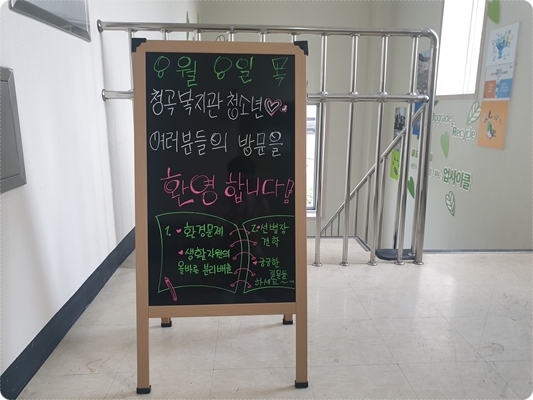 8월 8일 목
청곡복지관 청소년
여러분들의 방문을
환영합니다!
1. 환경문제
생활자원의
올바로 분리배출
2. 선별장
견학
궁금한
질문들
하세요~
Upgrade
Recycle
업사이클